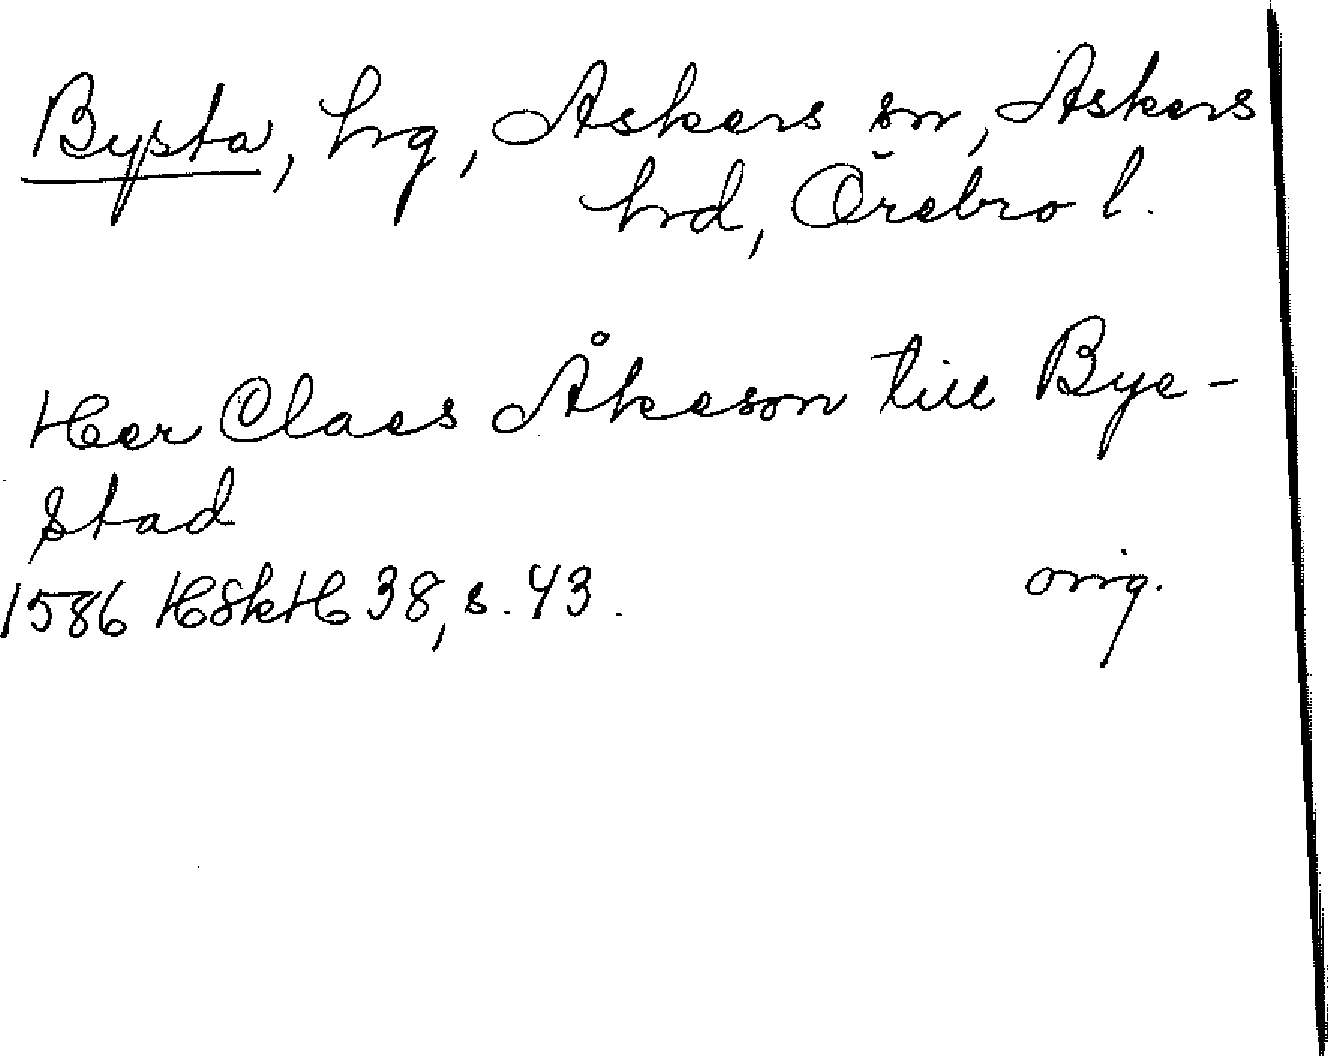 Bysta, hrg, Askers sn, Askers
hrd, Örebro l.
Her Claes Åkeson till Bye-
stad
1586 HSkH 38, s. 43. orig.